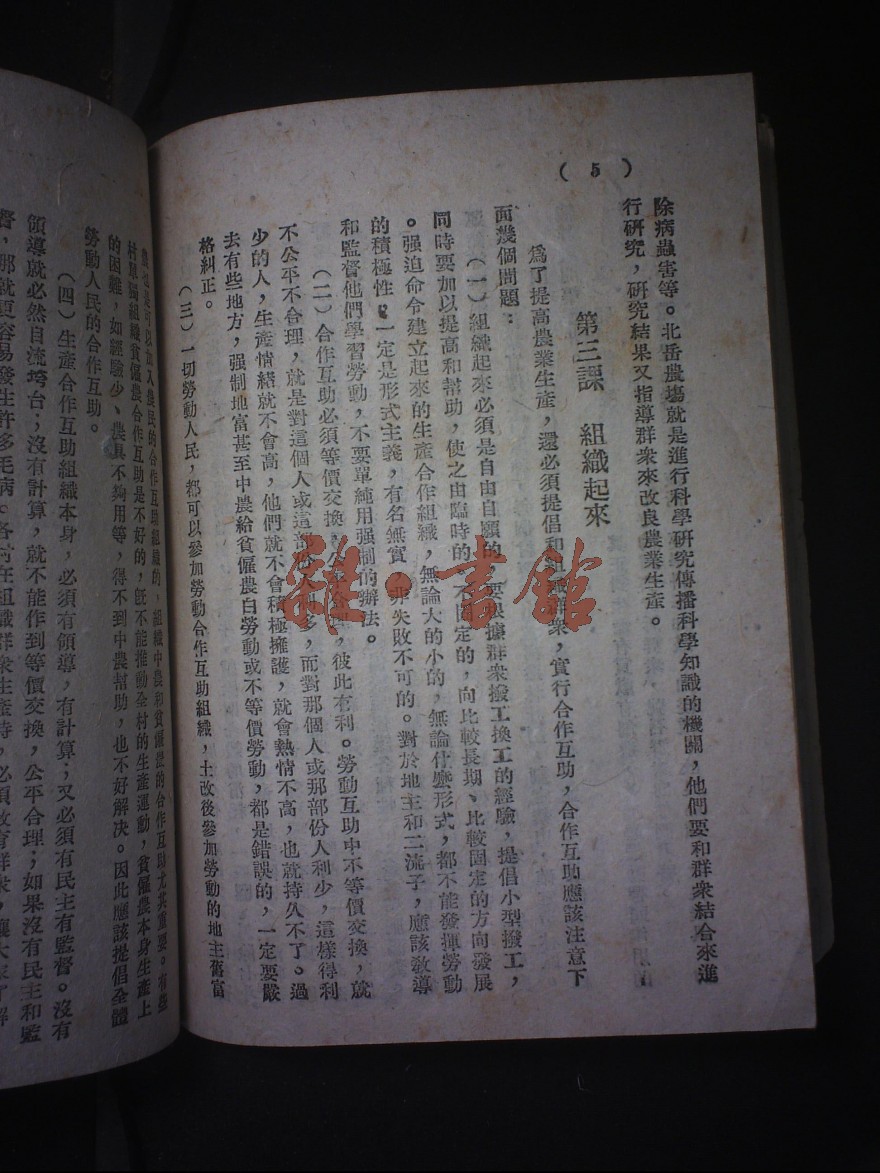 （5）
除病蟲害等。北岳農場就是進行科學研究傳播科學知識的機關，他們要和群衆結合來進
行研究，研究結果又指導群衆來改良農業生產。
第三課　組織起來
爲了提高農業生產，還必須提倡和組織群衆，實行合作互助，合作互助應該注意下
面幾個問題：
（一）組織起來必須是自由自願的，要根據群衆搬工換工的經驗，提倡小型撥工，
同時要加以提高和幫助，使之由臨時的、不固定的，向比較長期、比較固定的方向發展
。强迫命令建立起來的生產合作組織，無論大的小的，無論什麽形式，都不能發揮勞動
的積極性，一定是形式主義，有名無實，非失敗不可的。對於地主和二流子，應該敎導
和監督他們學習勞動，不要單純用强制的辦法。
（二）合作互助必須等價交換，公平合理，彼此有利。勞動互助中不等價交換，就
不公平不合理，就是對這個人或這部份人利多，而對那個人或那部份人利少，這樣得利
少的人，生產情緒就不會高，他們就不會積極擁護，就會熱情不高，也就持久不了。過
去有些地方，强制地富甚至中農給貧僱農白勞動或不等價勞動，都是錯誤的，一定要嚴
格糾正。
（三）一切勞動人民，都可以參加勞動合作互助組織，土改後參加勞動的地主舊富
農也是可以加入農民的合作互助組織的，組織中農和貧僱農的合作互助尤其重要。有些
村單獨組織貧僱農合作互助是不好的，旣不能推動全村的生產運動，貧僱農本身生產上
的困難，如經驗少、農具不夠用等，得不到中農幫助，也不好解决。因此應該提倡全體
勞動人民的合作互助。
（四）生產合作互助組織本身，必須有領導，有計算；又必須有民主有監督。沒有
領導就必然自流垮台；沒有計算，就不能作到等價交換，公平合理；如果沒有民主和監
督，那就更容易發生許多毛病。各村在組織群衆生產時，必須敎育群衆，讓大家了解
雜·書館